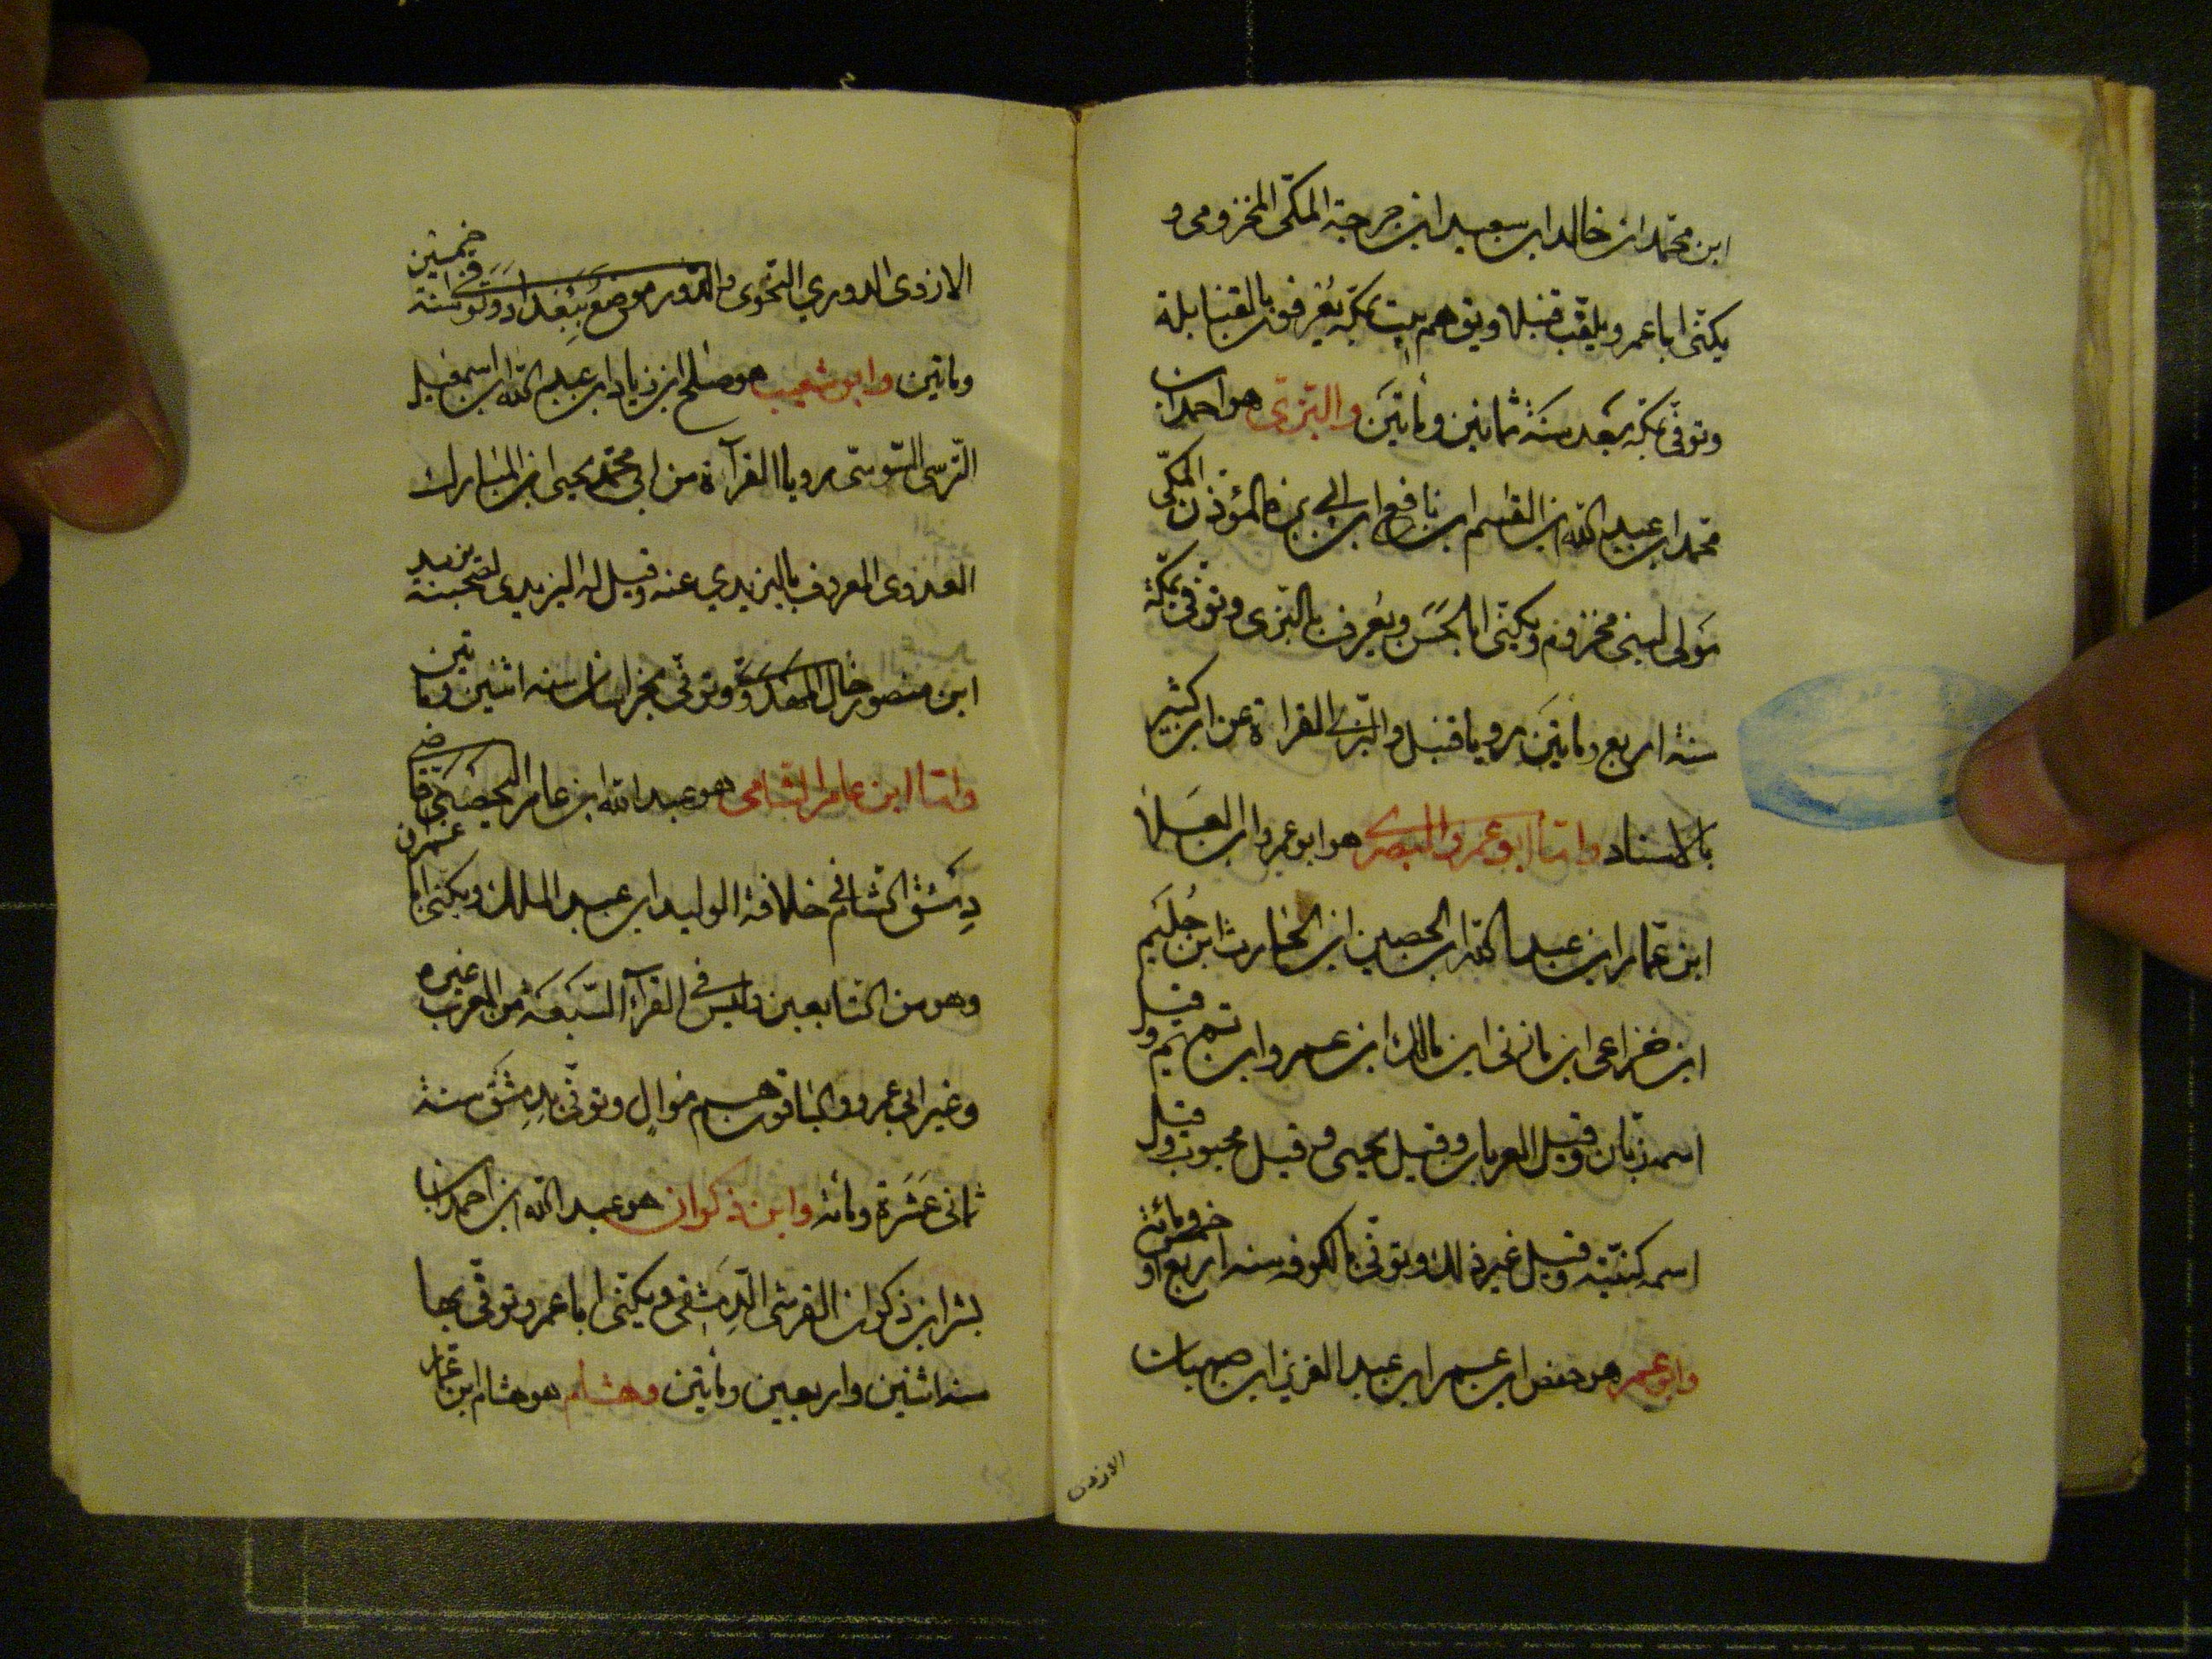 ابن محمد ابن خالد ابن سعيد ابن جرجة المكّى المخزومى و
يكنّى ابا عمر ويلقّب قنبلا ويق هم بيت بمكّة يُعرفون بالقنابلة
وتوفّى بمكّة بَعد سَنَة ثمانين ومأتَين والبَزّى هو احمد ابن
محمّد ابن عبد الله ابن القسم ابن نافع ابن ابى بزه المؤذن المكّى
مَولى لبنى مخزوم ويكنّى ابا الحَسَن ويُعرف بالبَزى وتوُفّى بمكّة
سنة اربع ومأتَين رويا قنبل والبَزى القراءة عن ابن كثير
بالاسناد وامّا ابو عمرو البصرى هو ابو عمرو ابن العلا
ابن عمّار ابن عبد الله ابن الحصين ابن الحارث ابن جُلهَم
ابن خزاعى ابن مازنى ابن مالك ابن عمرو ابن تميم وقيل
اسمه زبّان وقيل العريان وقيل يحيى وقيل محبوب وقيل
اسمه كنيّته وقيل غير ذلك وتوفّى بالكوفه سنه اربع او خمس ومائة
وابو عمر هو حفص ابن عمر ابن عبد العزيز ابن صهبان
الازدى
الازدى الدوري النّحوى والدّور موضعُ ببغداد وتوفى سنة خمسين
ومأتين وابو شعيب هو صلح ابن زياد ابن عبد الله ابن اسمعيل
الرّسى السّوسى رويا القرآءة من ابى محمّد يحيى ابن المبارك
العدوى المعروف باليزيدي عنه وقيل له اليزيدى لصحبته يزيد
ابن منصور خال المهدى وتوفّى بخراسان سنه اثنين ومأتين
وامّا ابن عامر الشّامى هو عبد الله ابن عامر اليحصُبى قاضى
دِمَشق الشّام فى خلافة الوليد ابن عبد الملك ويكنى ابا عمران
وهو من التّابعين وليس فى القرّآء السّبعَة من العرب غيره
وغير ابى عمرو والباقون هم موالٍ وتوفّى بدِمَشق سنة
ثمانى عَشَرة ومائة وابن ذكوان هو عبد الله ابن احمد ابن
بشر ابن ذكوان القرشى الدِّمَشقى ويكنّى ابا عمر وتوفّى بها
سنة اثنين واربعين ومأتين وهشام هو هشام ابن عمّار